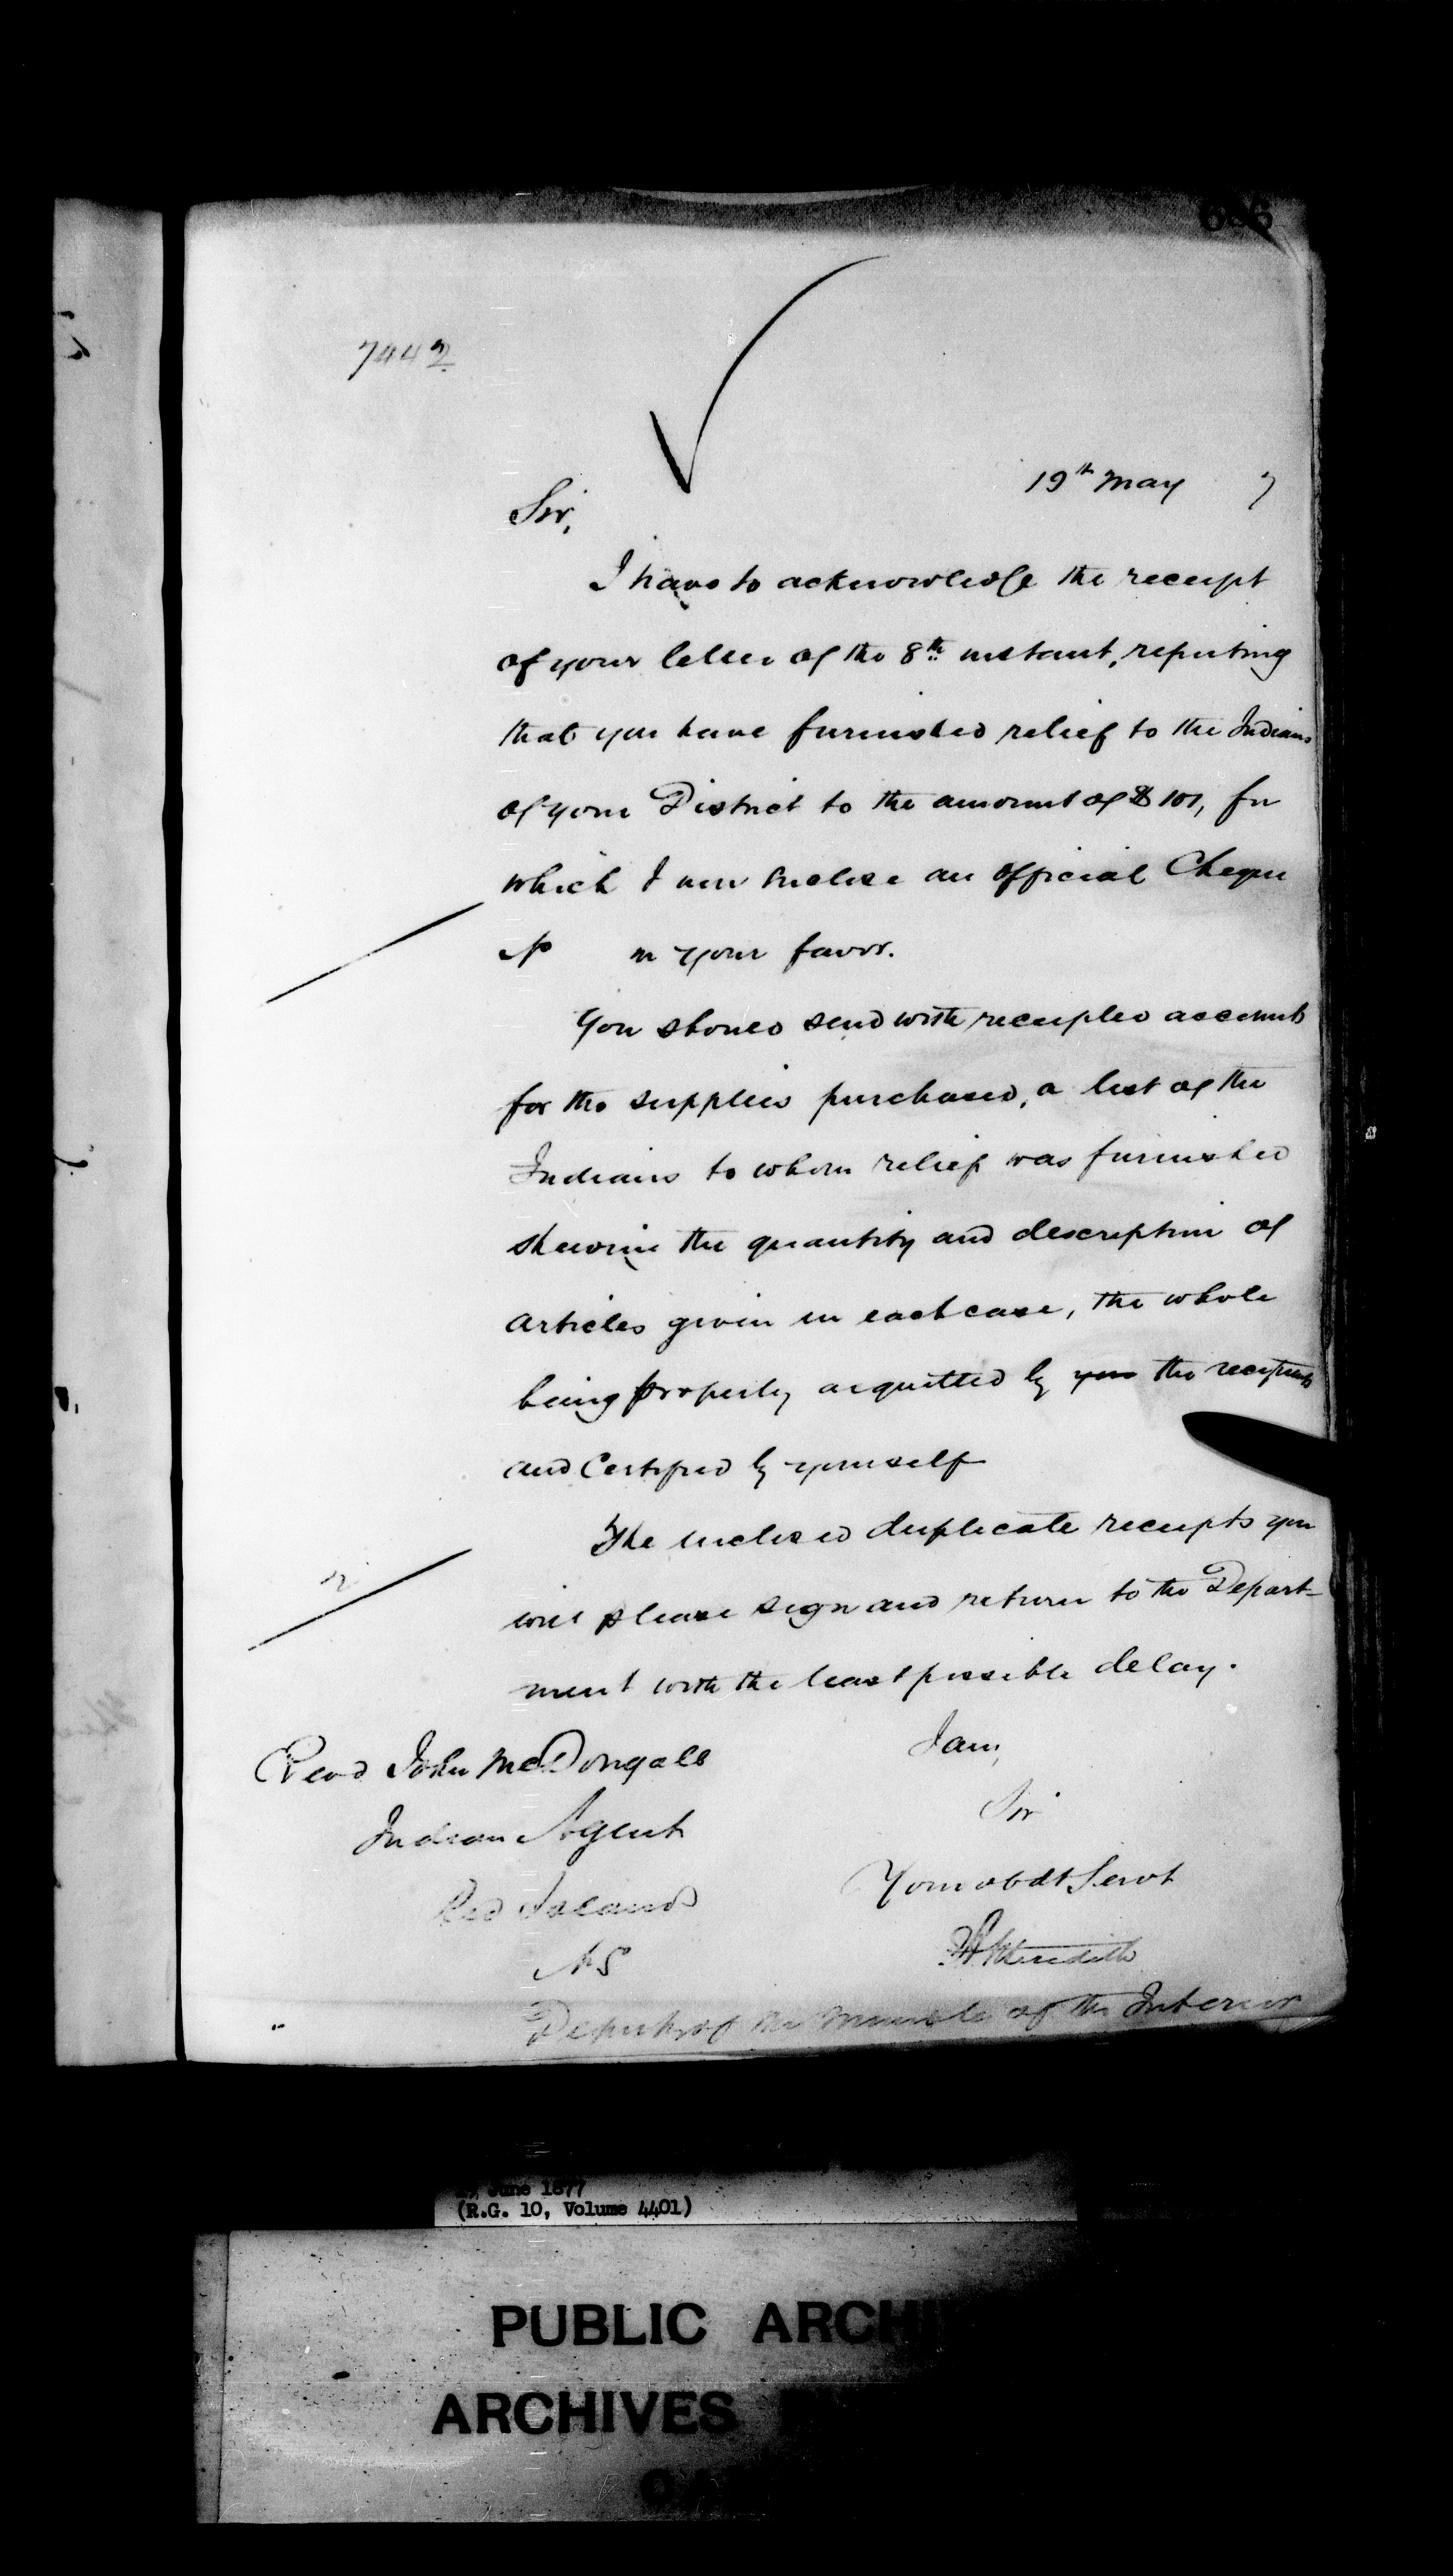 7442
19th May 7
Sir,
I have to acknowledge the receipt
of your letter of the 8th instant, reporting
that you have furnished relief to the Indians
of your District to the amount of $101, for
which I now inclose an official Cheque
No in your favor.
You should send with receipted accounts
for the supplies purchased, a list of the
Indians to whom relief was furnished
shewing the quantity and description of
articles given in each case, the whole
being properly acquitted by you the recipients
and Certified by yourself
The inclosed duplicate receipts you
2
will please sign and return to the Depart-
ment with the least possible delay.
I am,
Revd John McDougall
Sir
Indian Agent
Your obdt Servt
Red Islands
Meredith
NS
Deputy of the Minister of the Interior
June 1877
(R.G. 10, Volume 4401)
PUBLIC ARCHI
ARCHIVES